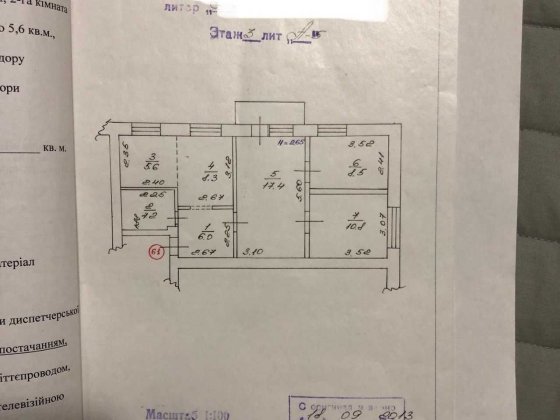 2-га кімната
литер
5,6 кв.м.,
Этаж 3 лит „А-5
дору
ори
кв. м.
H=265
2.35
3
5.6
2.40
4
8.3
3.12
2.67
5
17.4
5.60
3.52
6
8.5
2.41
2.25
2
1
6.0
2.25
2.67
3.10
7
10.8
3.07
3.52
61
атеріал
и диспетчерської
постачанням,
іттєпроводом,
телевізійною
Масштаб 1:100
18 09 2013